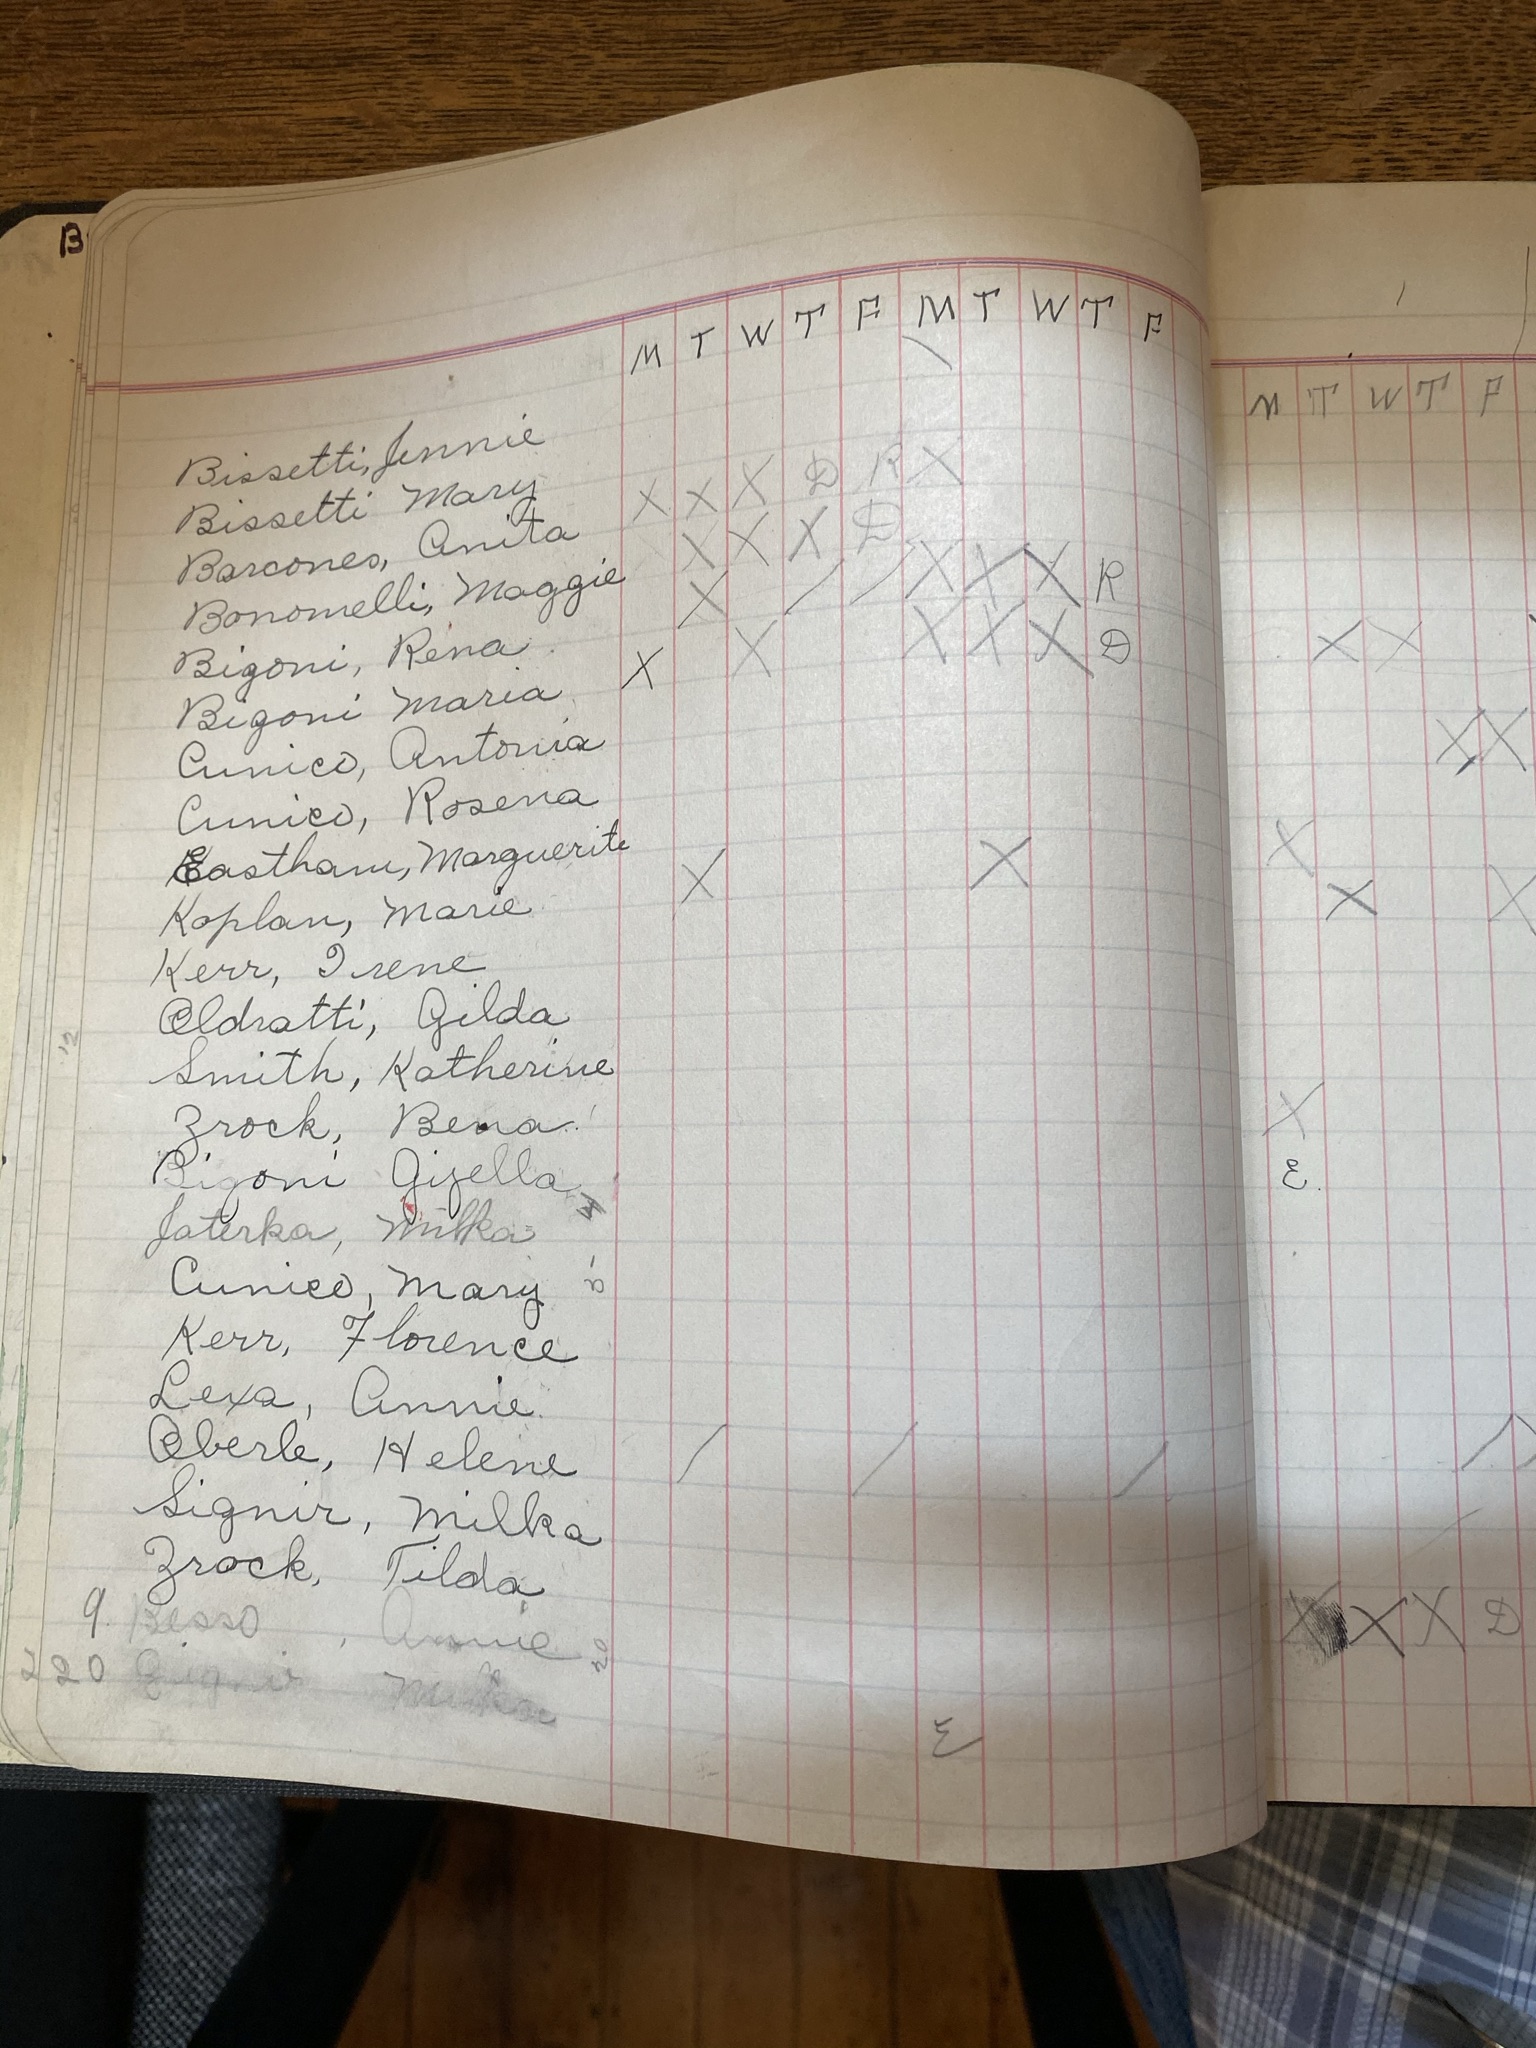 B
M T W T F M T W T F
M T W T F
Bissetti, Jennie
Bissetti Mary X X X D R X
Barcones, Anita X X X D
Bonomelli, Maggie X / / X X X R
Bigoni, Rena X X X X X D
X X
Bigoni Maria
Cunico, Antonia
X X
Cunico, Rosena
Eastham, Marguerite X X
X
Kaplan, Marie
X X
Kerr, Irene
Oldratti, Gilda
Smith, Katherine
Zrock, Bena
X
Bigoni Gizella
E
Jaterka, Milka
Cunico, Mary
Kerr, Florence
Lexa, Annie
Oberle, Helene / / /
Signir, Milka
Zrock, Tilda
9 Besso, Annie 20
X X X D
220 Milka
E